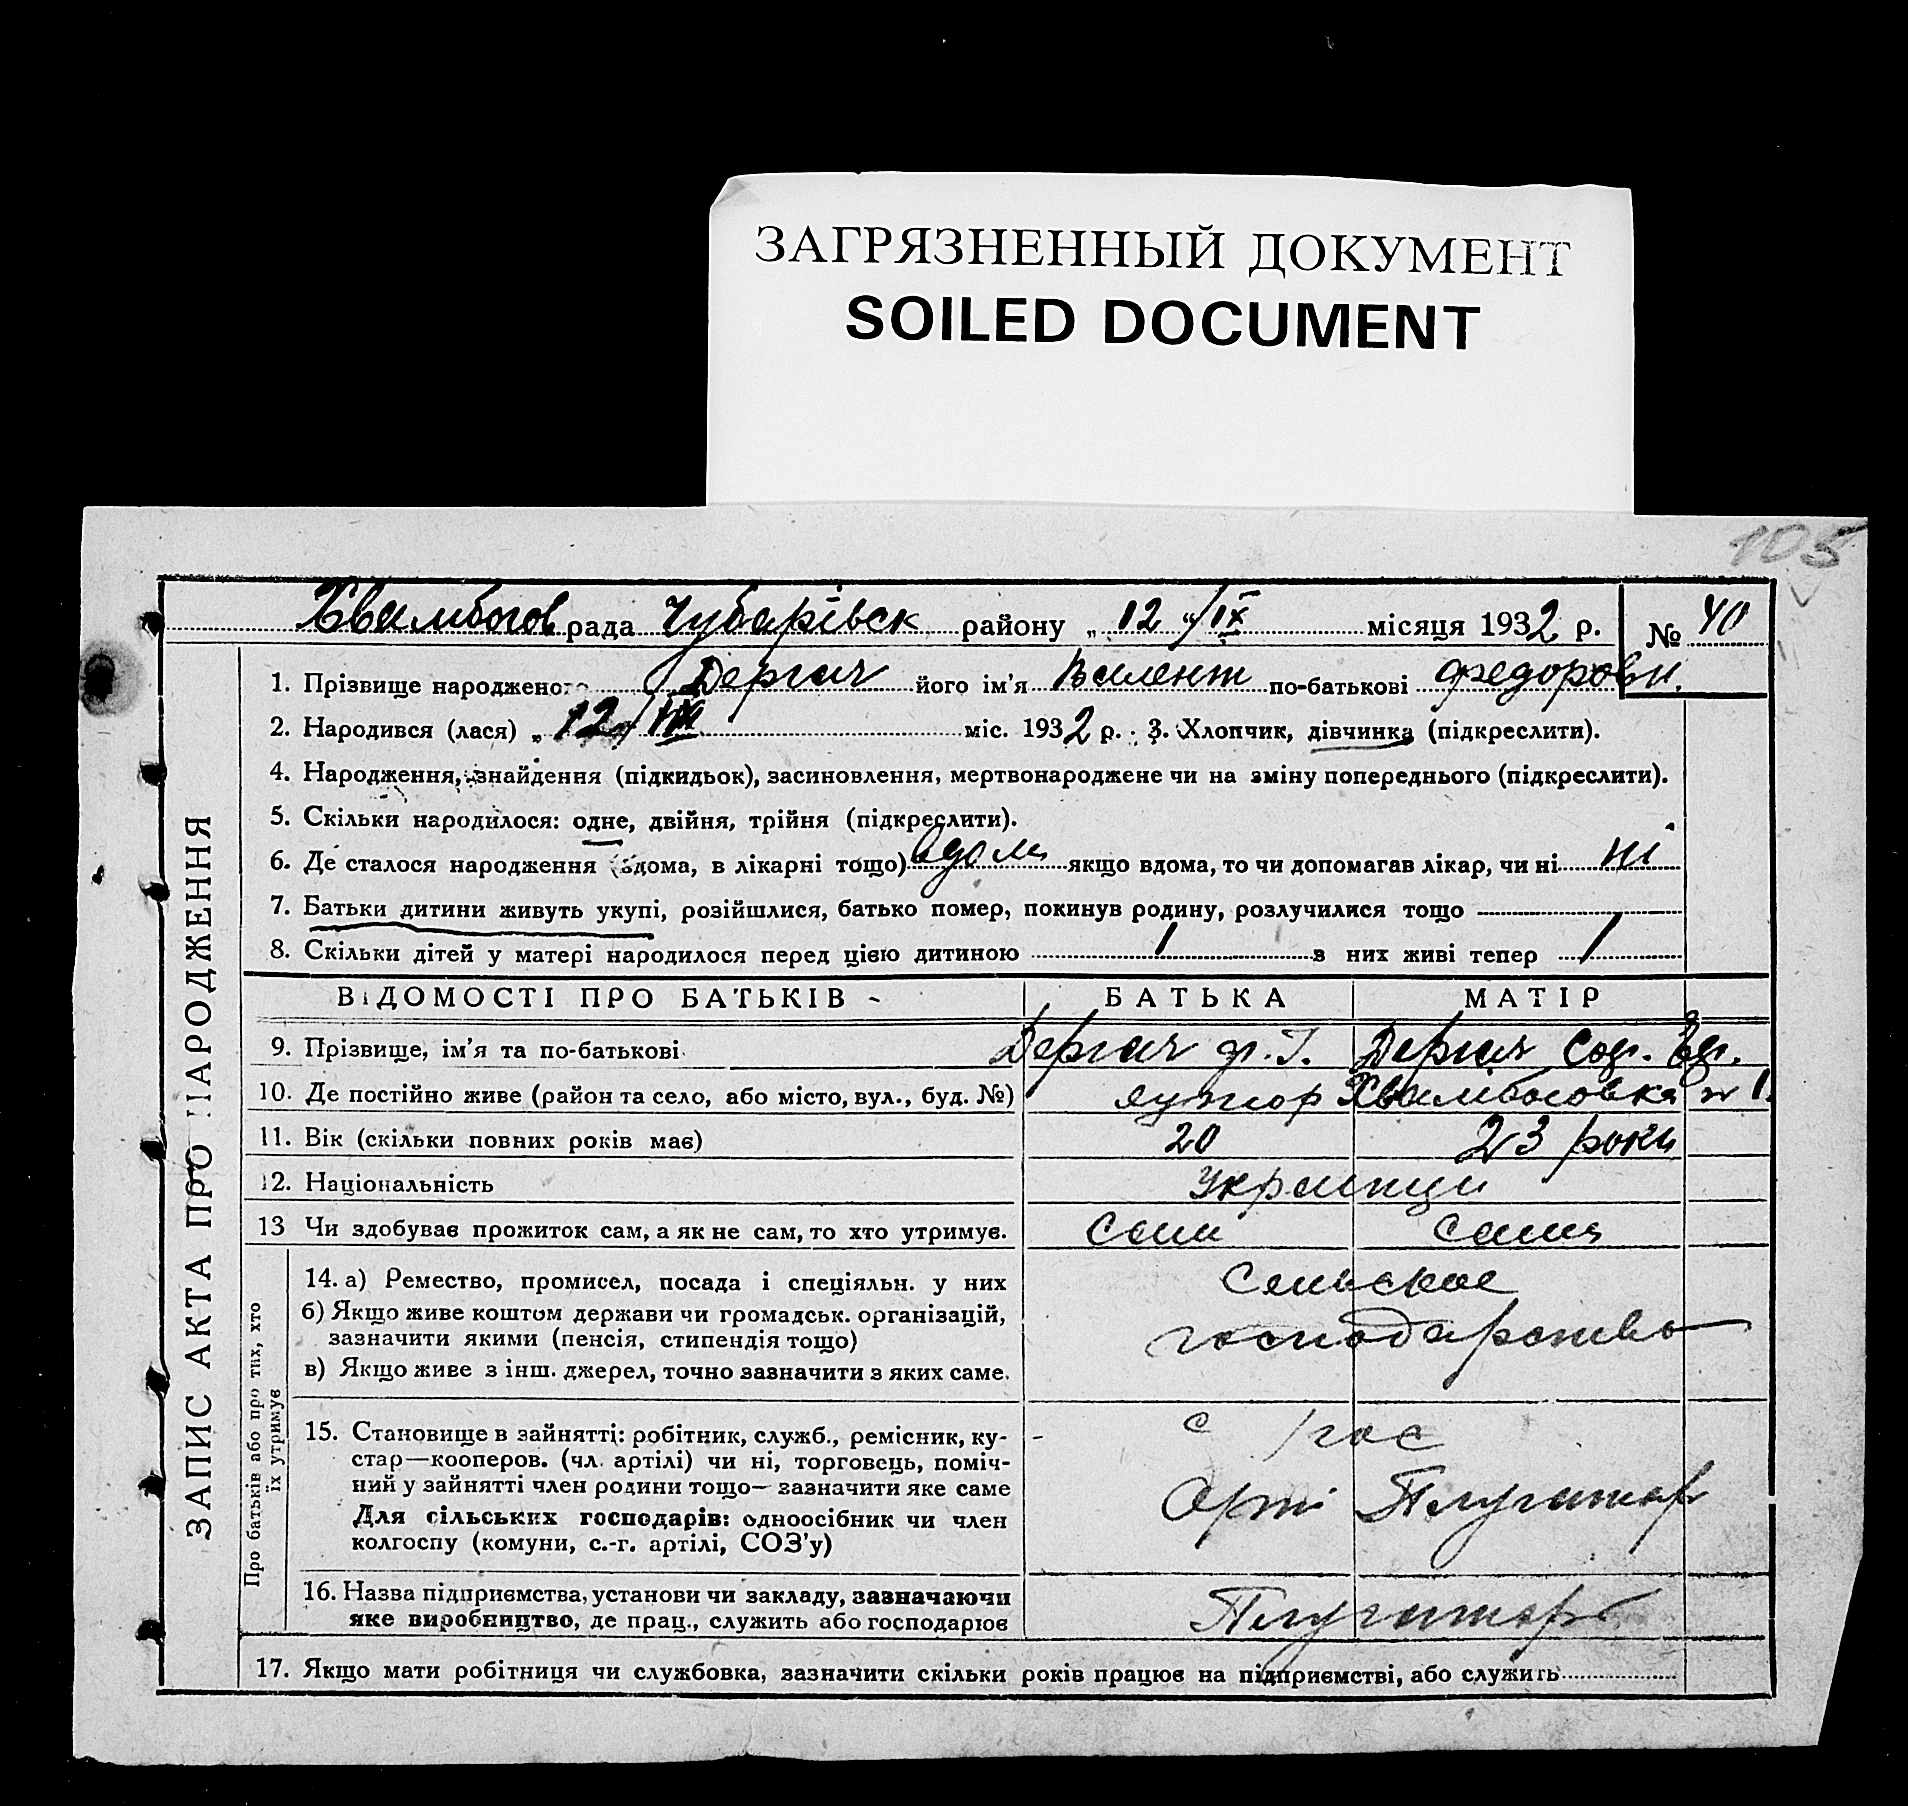 ЗАГРЯЗНЕННЫЙ ДОКУМЕНТ
SOILED DOCUMENT
105
рада Чубарівск району „ 12 " IX місяця 1932 р. № 40
1. Прізвище народженого Дергач його ім'я Валент по-батькові Федоровн.
2. Народився (лася) „ 12 міс. 1932 р. 3. Хлопчик, дівчинка (підкреслити).
4. Народження, знайдення (підкидьок), засиновлення, мертвонароджене чи на зміну попереднього (підкреслити).
5. Скільки народилося: одне, двійня, трійня (підкреслити).
6. Де сталося народження (вдома, в лікарні тощо) вдома якщо вдома, то чи допомагав лікар, чи ні ні
7. Батьки дитини живуть укупі, розійшлися, батько помер, покинув родину, розлучилися тощо
8. Скільки дітей у матері народилося перед цією дитиною 1 з них живі тепер 1
ВІДОМОСТІ ПРО БАТЬКІВ БАТЬКА МАТІР
9. Прізвище, ім'я та по-батькові Дергач Ф. І. Дергач Соф.
10. Де постійно живе (район та село, або місто, вул., буд. №) хутор
11. Вік (скільки повних років має) 20 23 роки
12. Національність Украинци
13 Чи здобуває прожиток сам, а як не сам, то хто утримує. Сам Сама
14. а) Ремество, промисел, посада і спеціяльн. у них Сельское
б) Якщо живе коштом держави чи громадськ. організацій,
зазначити якими (пенсія, стипендія тощо) господарство
в) Якщо живе з інш. джерел, точно зазначити з яких саме.
15. Становище в зайнятті: робітник, служб., ремісник, ку- с/гос
стар—кооперов. (чл. артілі) чи ні, торговець, поміч-
ний у зайнятті член родини тощо— зазначити яке саме Арті Плугатар
Для сільських господарів: одноосібник чи член
колгоспу (комуни, с.-г. артілі, СОЗ'у)
16. Назва підприємства, установи чи закладу, зазначаючи Плугатарь
яке виробництво, де прац., служить або господарює
17. Якщо мати робітниця чи службовка, зазначити скільки років працює на підприємстві, або служить
ЗАПИС АКТА ПРО НАРОДЖЕННЯ
Про батьків або про тих, хто
їх утримує